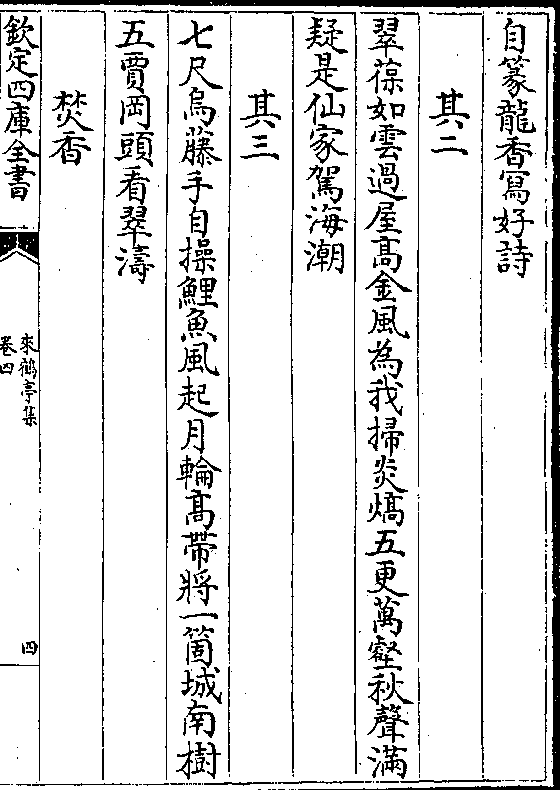 自篆龍香寫好詩
其二
翠葆如雲過屋高金風為我掃炎熇五更萬壑秋聲滿
疑是仙家駕海潮
其三
七尺烏藤手自操鯉魚風起月輪高帶將一箇城南樹
五賈岡頭看翠濤
焚香
欽定四庫全書
來鶴亭集
卷四
四